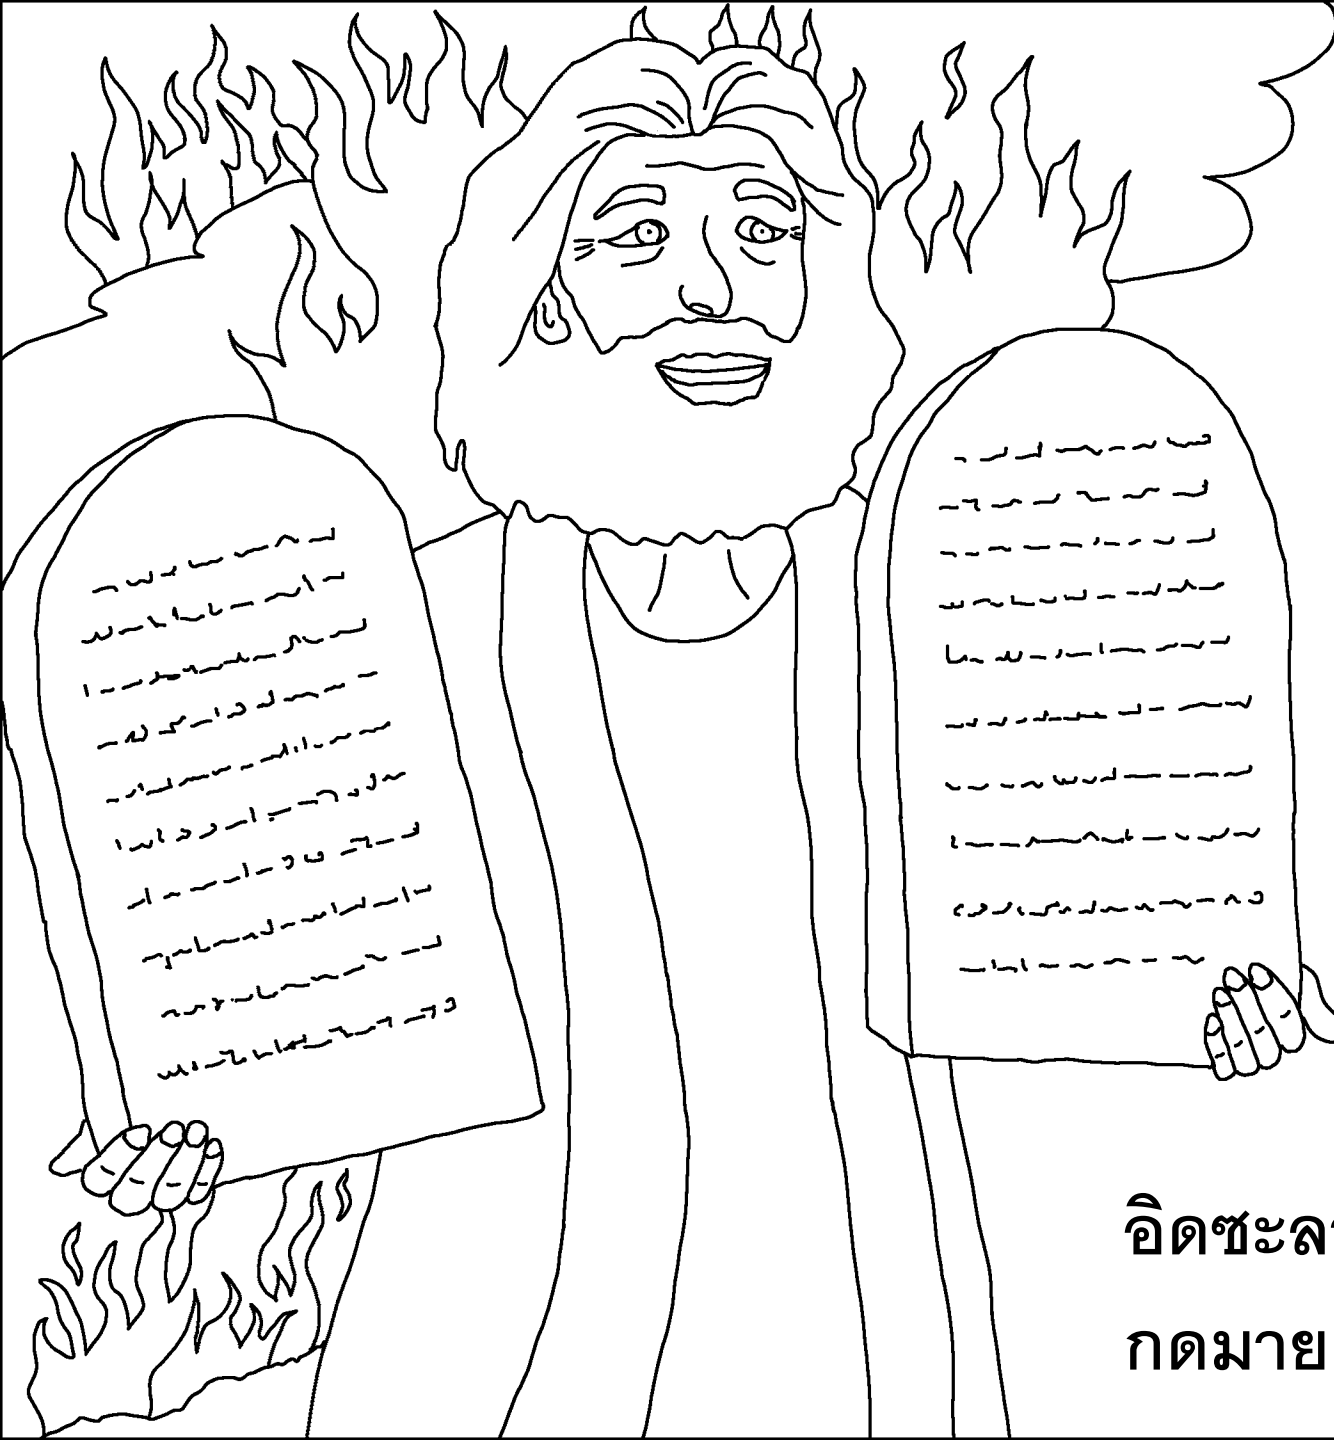 อิดซะลา
กดมาย